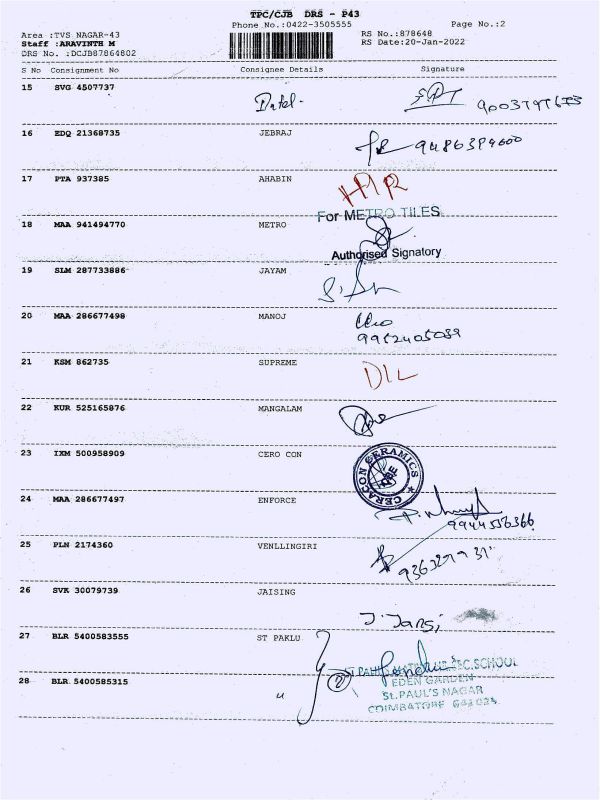 TPC/CJB DRS - P43
Phone No.:0422-3505555
Page No.:2
Area :TVS NAGAR-43
RS No.:878648
Staff :ARAVINTH M
RS Date:20-Jan-2022
DRS No. :DCJB87864802
S No Consignment No Consignee Details Signature
15 SVG 4507737
16 EDQ 21368735 JEBRAJ
17 PTA 937385 AHABIN
For METRO TILES
18 MAA 941494770 METRO
Authorised Signatory
19 SLM 287733886 JAYAM
20 MAA 286677498 MANOJ
9952405039
21 KSM 862735 SUPREME
22 KUR 525165876 MANGALAM
23 IXM 500958909 CERO CON
CERACON CERAMICS
CBE
24 MAA 286677497 ENFORCE
9944556366
25 PLN 2174360 VENLLINGIRI
26 SVK 30079739 JAISING
J. Jansi
27 BLR 5400583555 ST PAKLU
28 BLR 5400585315 "
2
SEC.SCHOOL
EDEN GARDEN
St.PAUL'S NAGAR
COIMBATORE